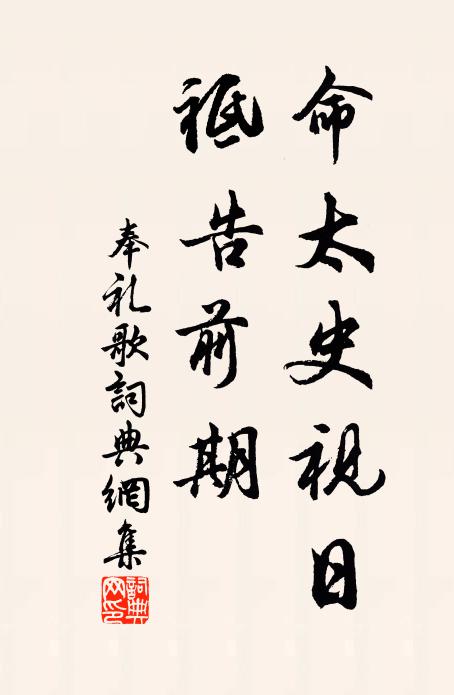 命太史視日
祗告前期
奉礼歌詞典網集
詞典网印